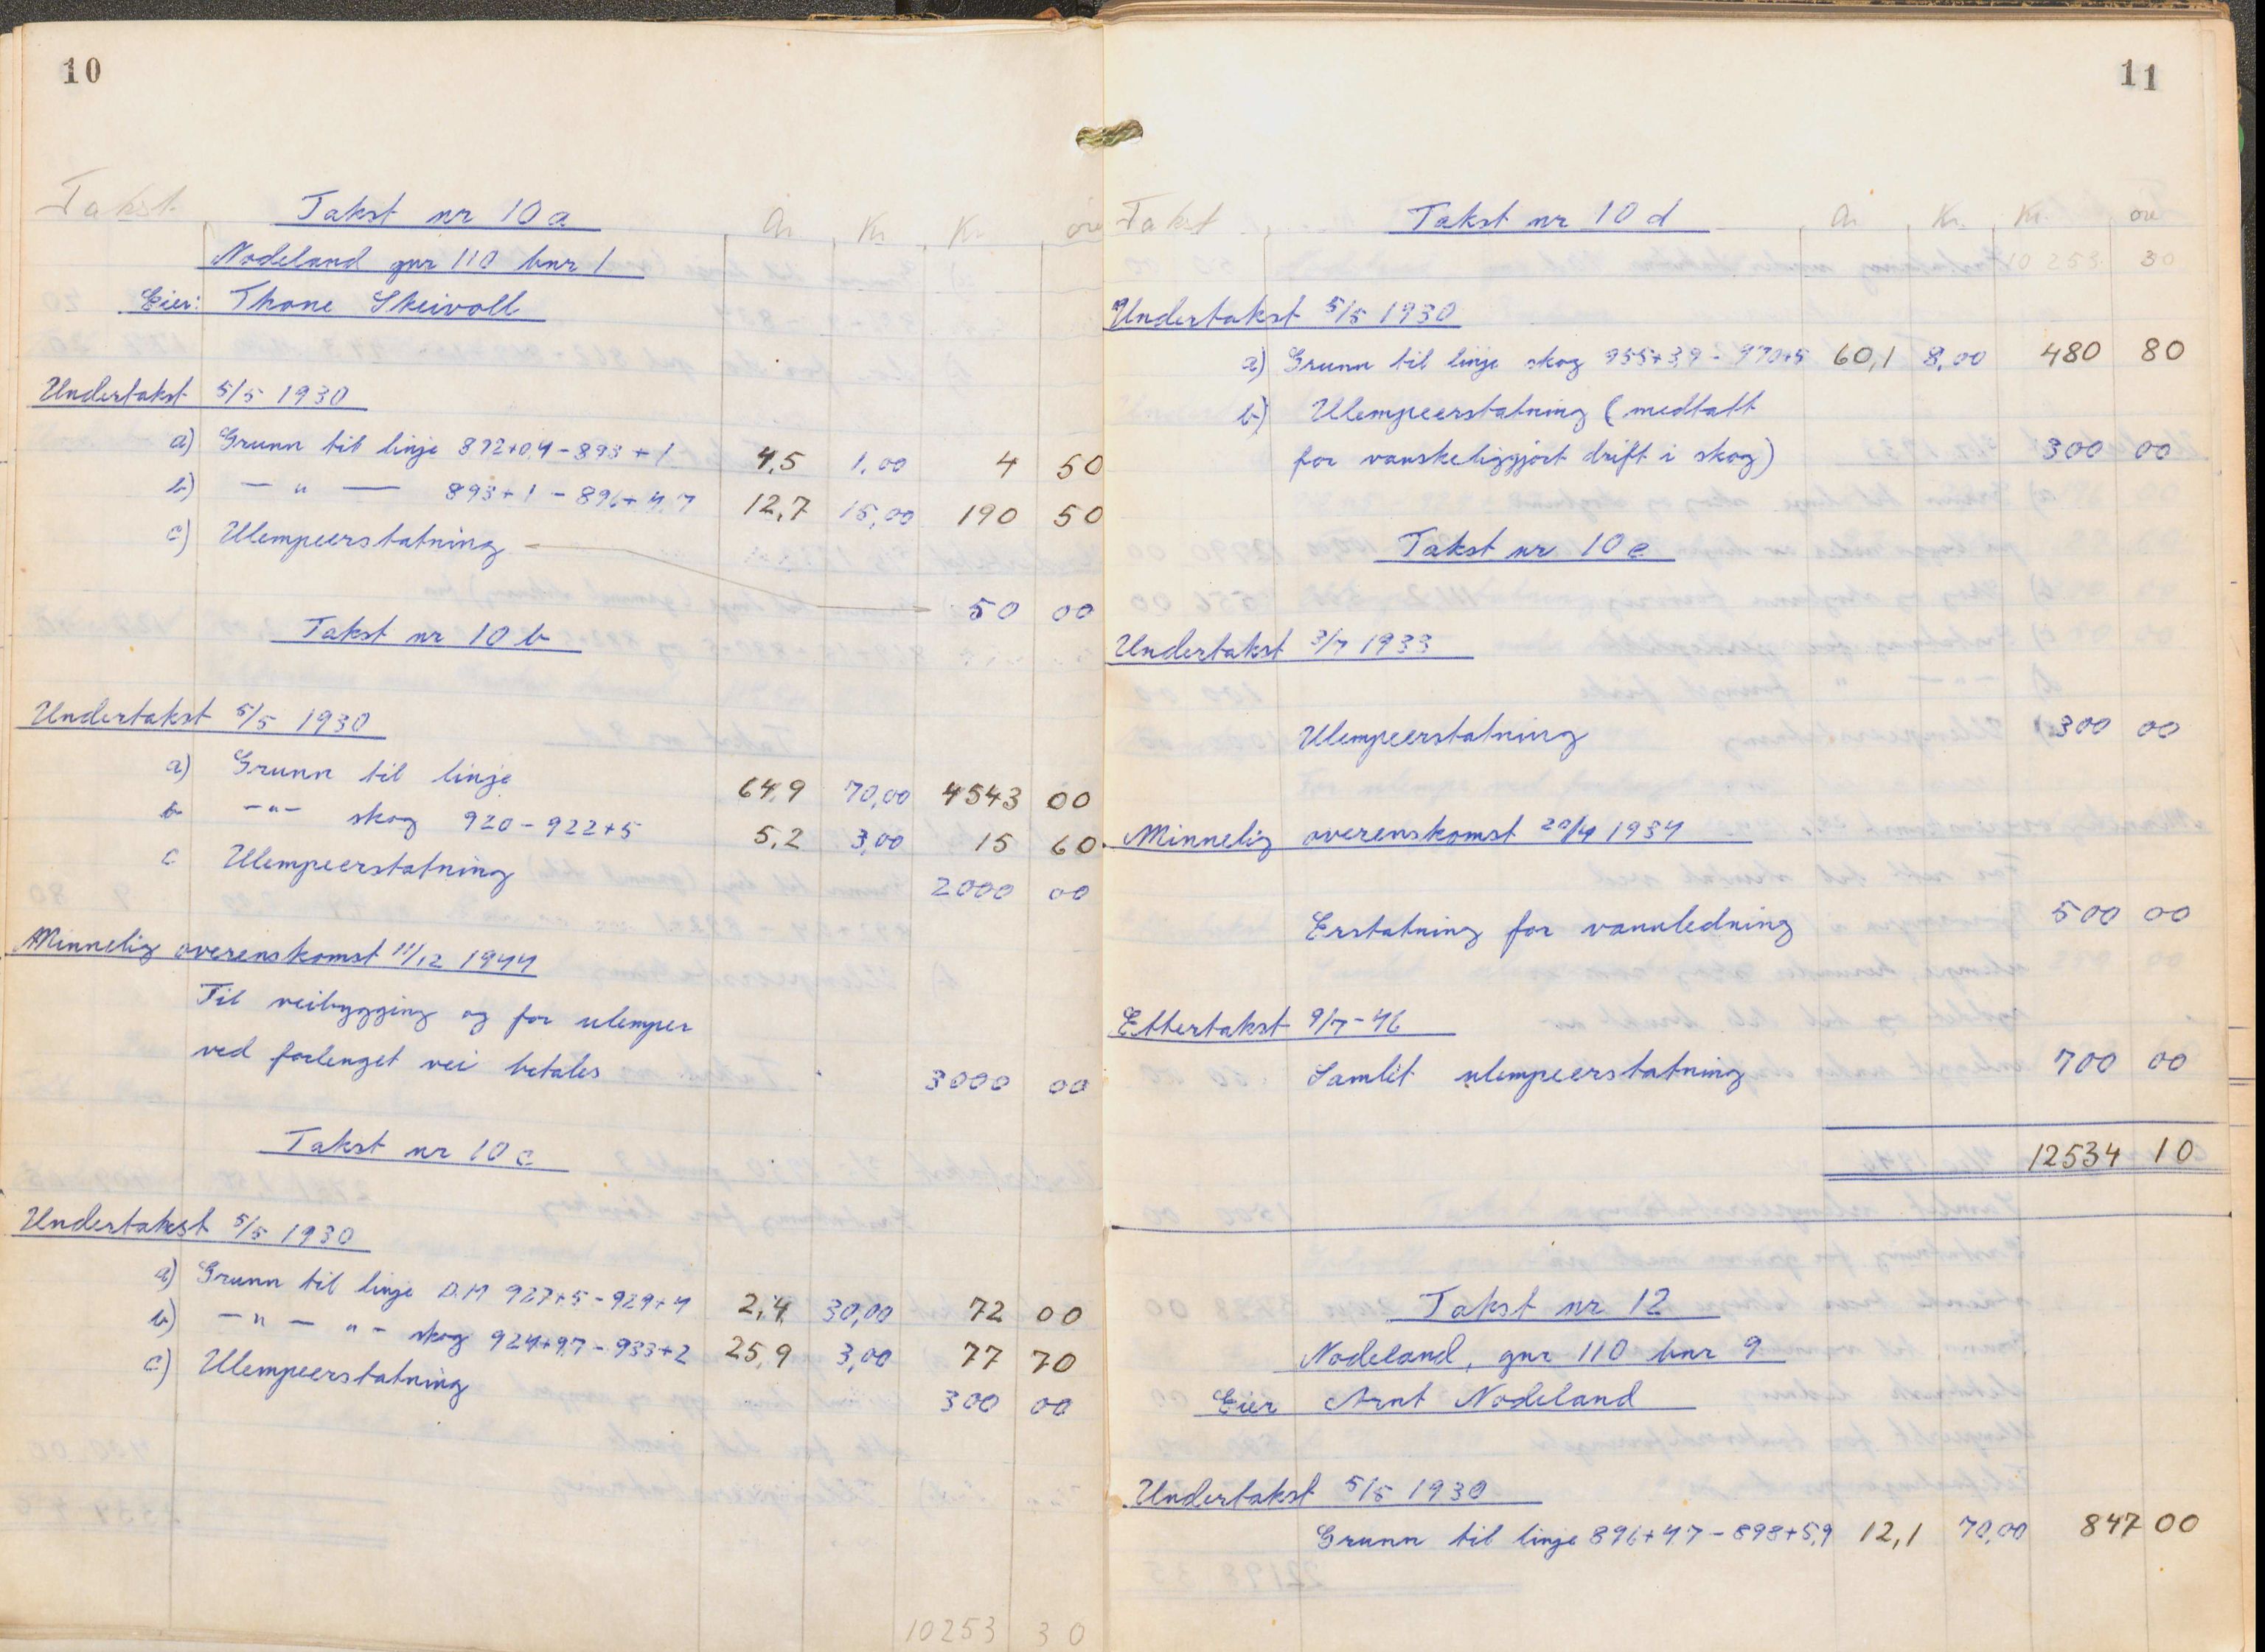 10
Takst Takst nr 10 a Ar Kr Kr øre
Nodeland gnr 110 bnr 1
Eier: Thone Skeivoll
Undertakst 5/5 1930
a) Grunn til linje 872+0,4 - 893 + 1 4,5 1,00 4 50
b) — " — 893+1 - 896+4,7 12,7 15,00 190 50
c) Ulempeerstatning 50 00
Takst nr 10 b
Undertakst 5/5 1930
a) Grunn til linje 64,9 70,00 4543 00
b -"- skog 920 - 922+5 5,2 3,00 15 60
c Ulempeerstatning 2000 00
Minnelig overenskomst 11/12 1944
Til veibygging og for ulemper
ved forlenget vei betales 3000 00
Takst nr 10 c
Undertakst 5/5 1930
a) Grunn til linje D.M 927+5 - 929+4 2,4 30,00 72 00
b) - " - " - skog 924+9,7 - 933+2 25,9 3,00 77 70
c) Ulempeerstatning 300 00
10253 30
11
Takst Takst nr 10 d Ar Kr. Kr. øre
10 253 30
Undertakst 5/5 1930
a) Grunn til linje skog 955+3,9 - 970+5 60,1 8,00 480 80
b) Ulempeerstatning (medtatt
for vanskeliggjort drift i skog) 300 00
Takst nr 10 e
Undertakst 3/7 1933
Ulempeerstatning 300 00
Minnelig overenskomst 20/4 1934
Erstatning for vannledning 500 00
Ettertakst 9/7-46
Samlet ulempeerstatning 700 00
12534 10
Takst nr 12
Nodeland, gnr 110 bnr 9
Eier Arnt Nodeland
Undertakst 5/5 1930
Grunn til linje 896+4,7 - 898+5,9 12,1 70,00 847 00